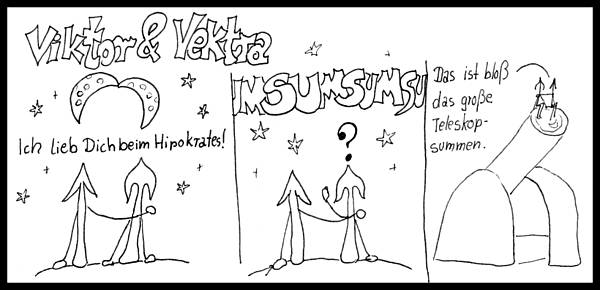 Viktor & Vektra
Ich lieb Dich beim Hipokrates!
MSUMSUMSU
?
Das ist bloß
das große
Teleskop-
summen.